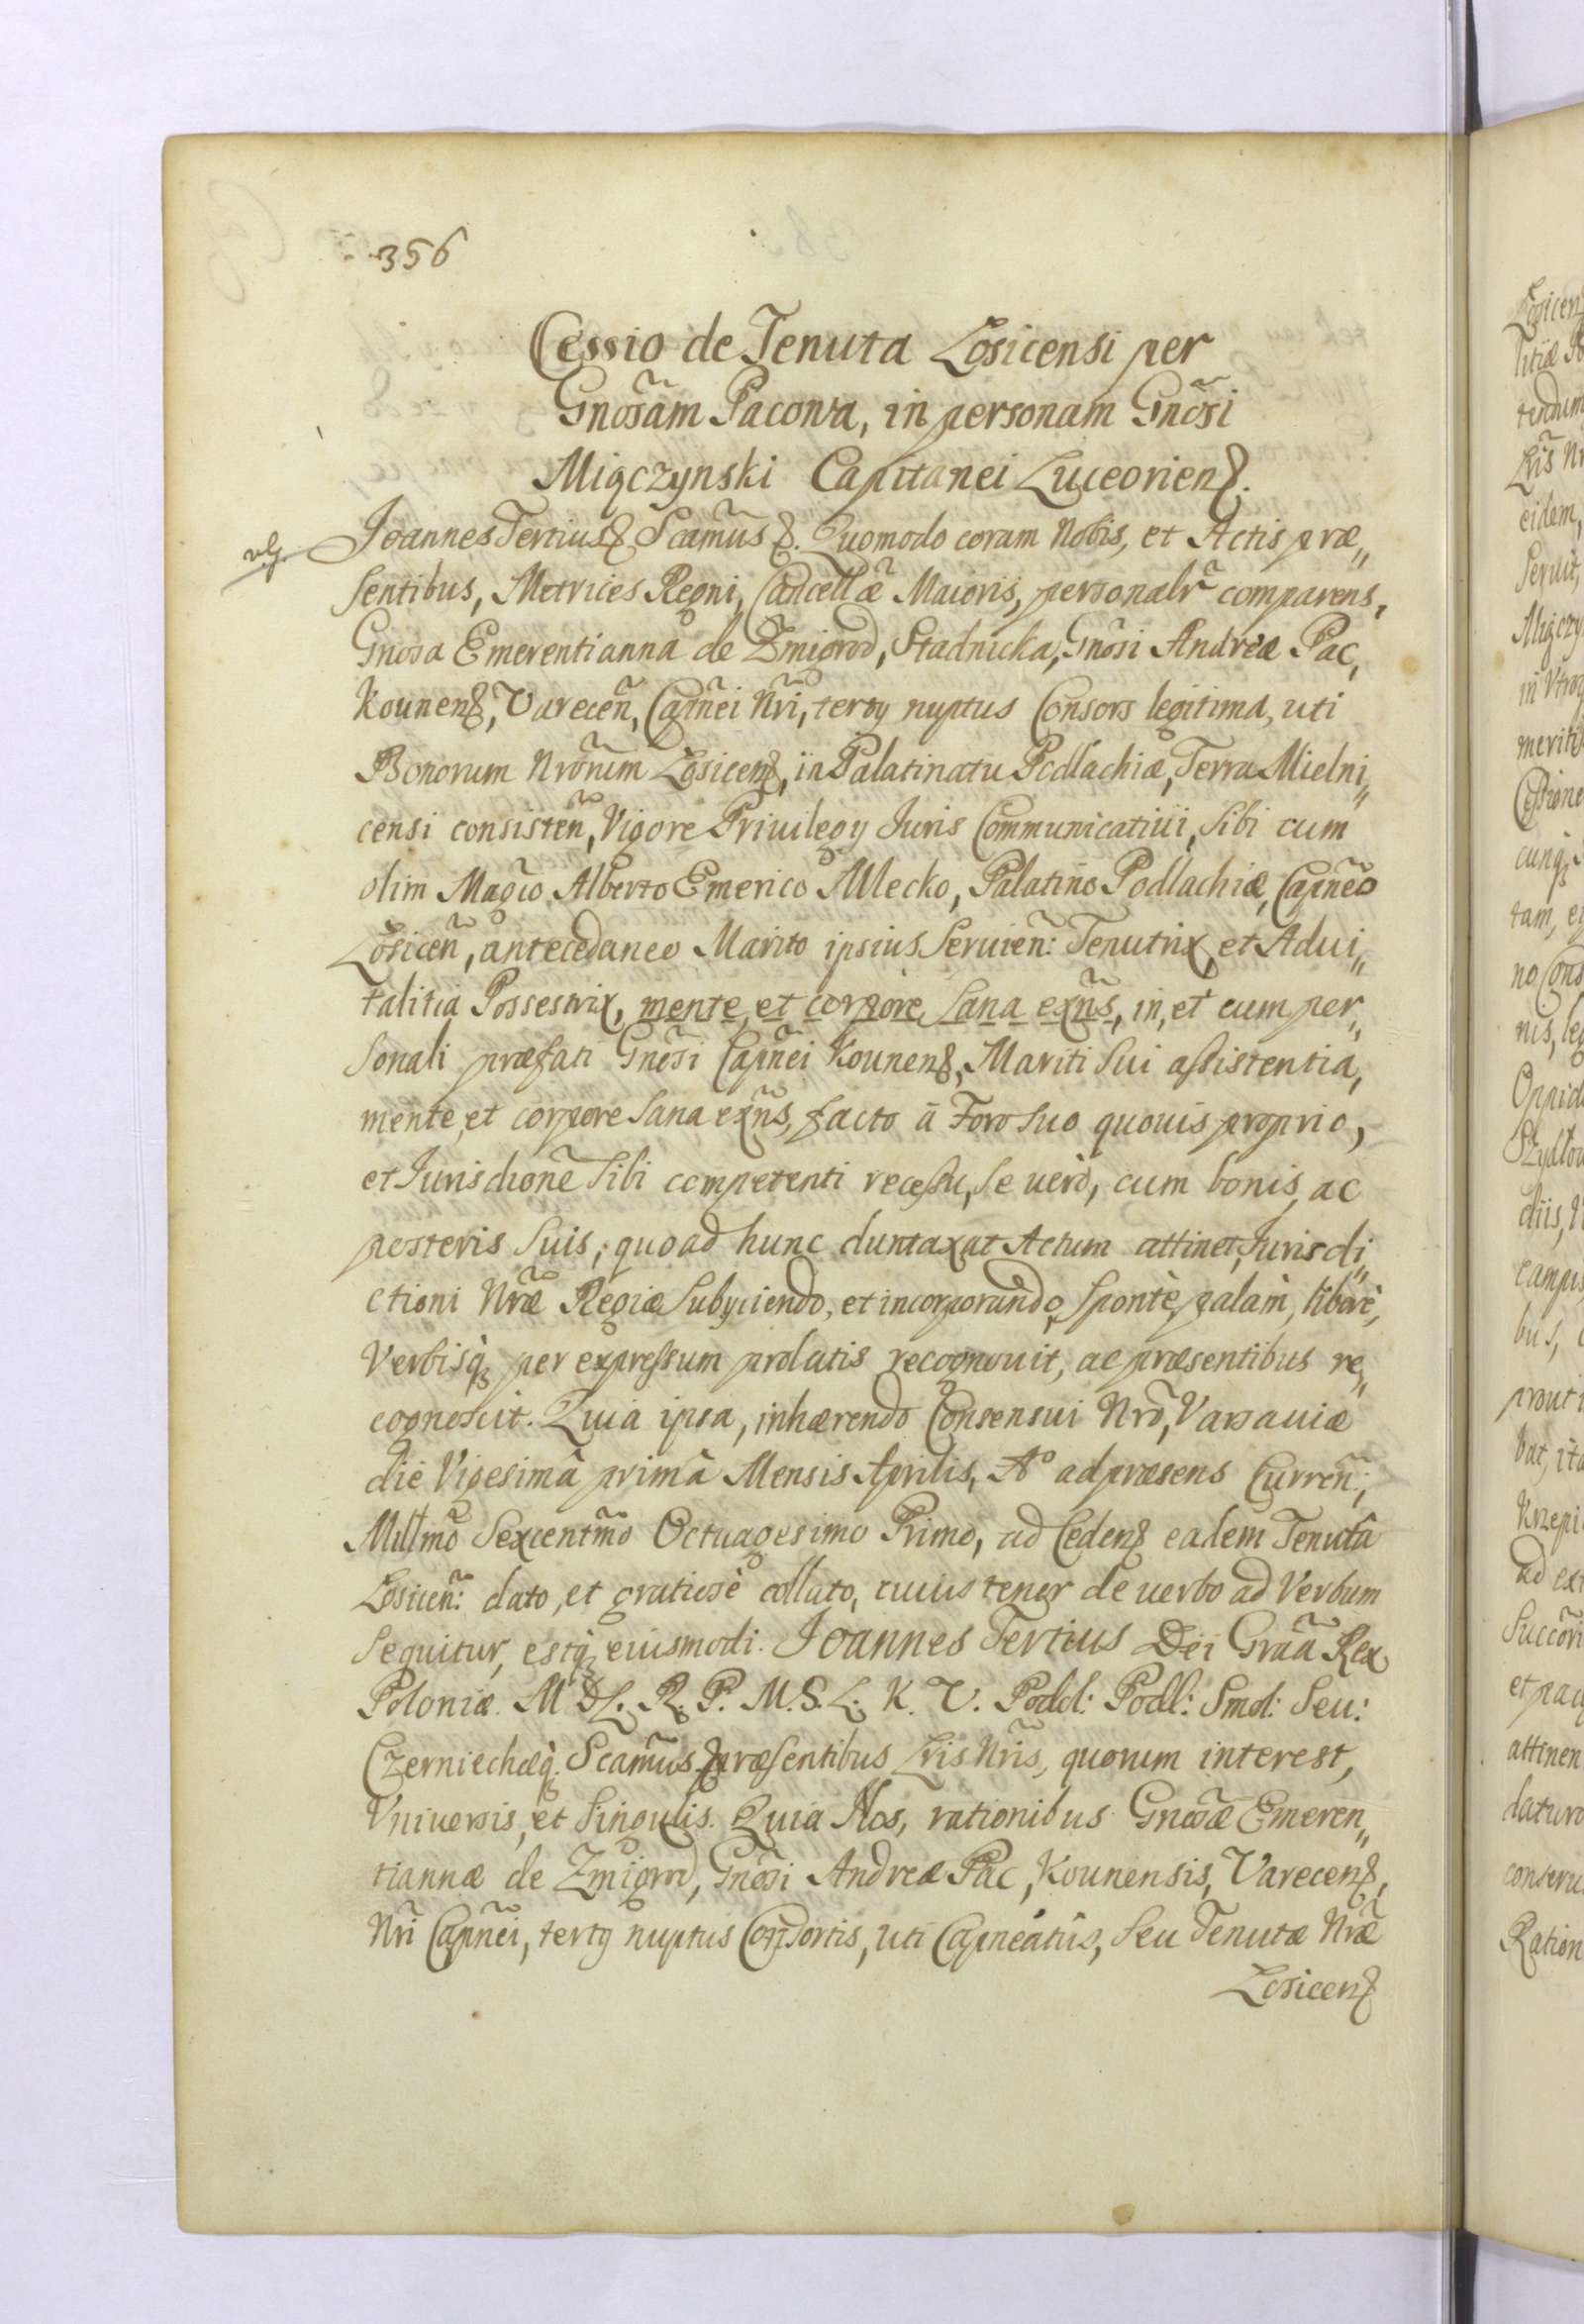 356
Cessio de Tenuta Łosicensi per
Gnosãm Pacowa, in personam Gnõsi
Miączynski Capitanei Luceorien̄.
Joannes Tertius & Scamũs &. Quomodo coram Nobis, et Actis præ„
sentibus, Metrices Regni, Cancellæ Maioris, personalr̃ comparens,
Gnosa Emerentianna de Zmigrod, Stadnicka, Gnõsi Andreæ Pac,
Kounen̄, Varecen̄, Capnei Nri, tertij nuptus Consors legitima, uti
Bonorum Nrõrum Łosicen̄, in Palatinatu Podlachiæ, Terra Mielni„
censi consisten̄, Vigore Priuilegij Iuris Communicatiui, sibi cum
olim Magco Alberto Emerico Mlecko, Palatino Podlachiæ, Capneo
Łosicen̄, antecedaneo Marito ipsius Seruien̄: Tenutrix, et Adui„
talitia Possestrix, mente, et corpore sana exñs, in, et cum per„
sonali præfati Gnosi Capnei Kounen̄, Mariti sui assistentia,
mente, et corpore sana exñs, facto à Foro suo quouis proprio,
et Jurisdione sibi competenti recessu, se uerò, cum bonis, ac
posteris suis, quoad hunc duntaxat Actum attinet, Jurisdi„
ctioni Nræ Regiæ subijciendo, et incorporando, sponte, palàm, liberè,
Verbisq; per expressum prolatis recognouit, ac præsentibus re„
cognoscit. Quia ipsa, inhærendo Consensui Nro, Varsauiæ
die Vigesimâ primâ Mensis Aprilis, Aº ad præsens Curren̄:,
Millmo Sexcentmo Octuagesimo Primo, ad Ceden̄ eadem Tenutâ
Łosicen̄: dato, et gratiosè collato, cuius tenor de uerbo ad Verbum
sequitur, estq; eiusmodi. Joannes Tertius Dei Grãa Rex
Poloniæ M D L. R. P. M. S. L. K. V. Podol: Podl: Smol: Seu:
Czerniechæq; Scamũs præsentibus Lris Nris, quorum interest,
Vniuersis, et singulis. Quia Nos, rationibus Gnosæ Emeren„
tiannæ de Zmigrod, Gnosi Andreæ Pac, Kounensis, Varecen̄,
Nri Capnei, tertij nuptus Consortis, uti Capneatûs, seu Tenutæ Nræ
Łosicen̄